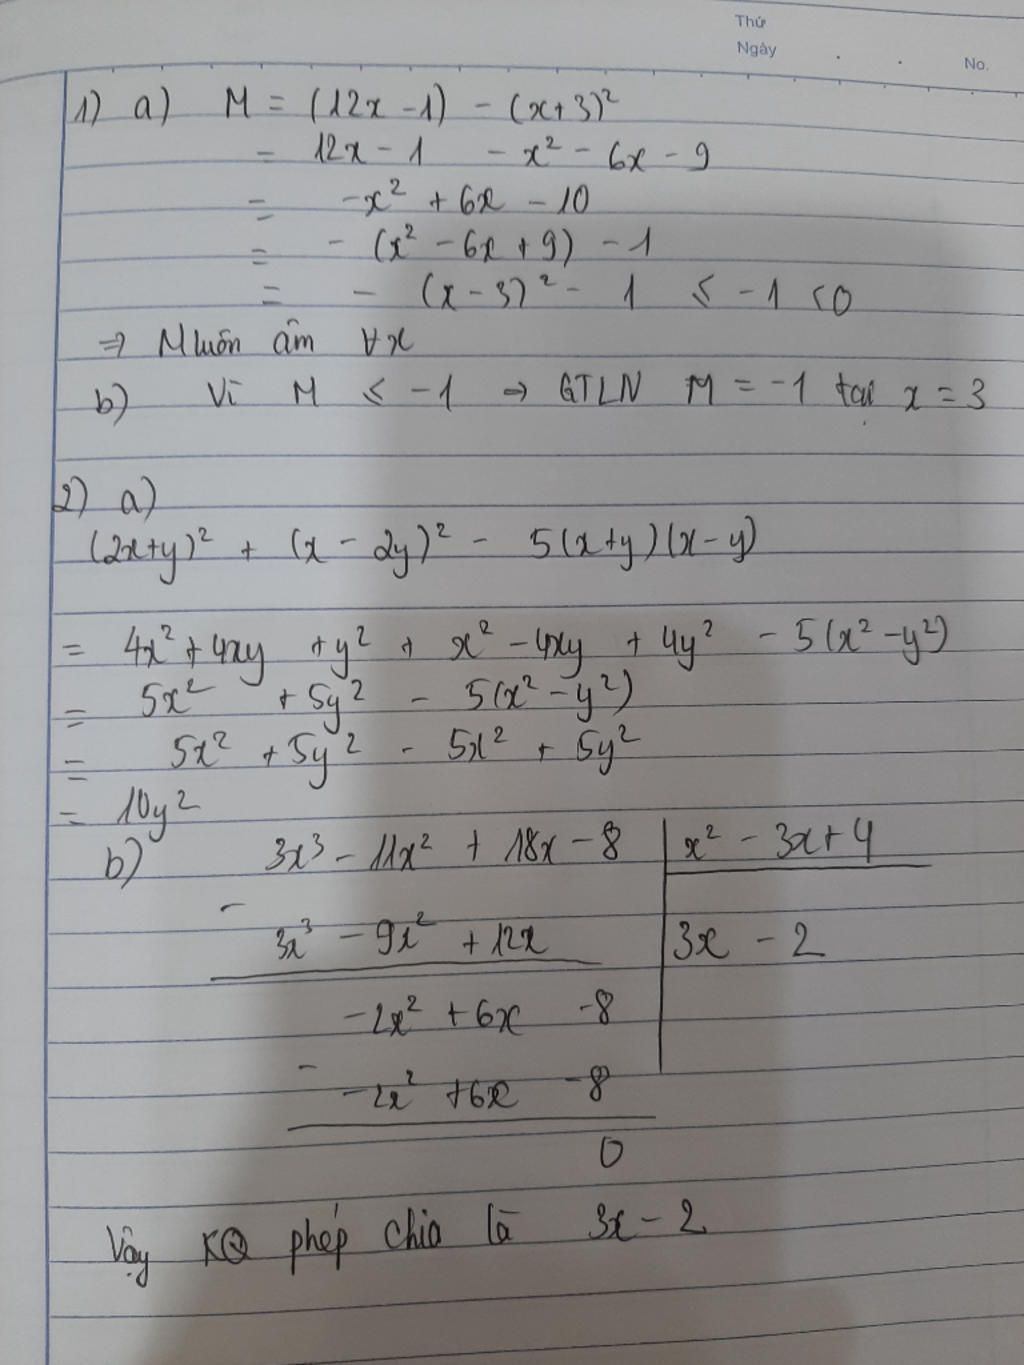 Thứ
Ngày . .
No.
1) a) M = (12x - 1) - (x+3)²
= 12x - 1 - x² - 6x - 9
= -x² + 6x - 10
= - (x² - 6x + 9) - 1
= - (x - 3)² - 1 ≤ -1 < 0
⇒ M luôn âm ∀x
b) Vì M ≤ -1 → GTLN M = -1 tại x = 3
2) a)
(2x+y)² + (x - 2y)² - 5(x+y)(x-y)
= 4x² + 4xy + y² + x² - 4xy + 4y² - 5(x² - y²)
= 5x² + 5y² - 5(x² - y²)
= 5x² + 5y² - 5x² + 5y²
= 10y²
b) 3x³ - 11x² + 18x - 8 | x² - 3x + 4
-
3x³ - 9x² + 12x | 3x - 2
-2x² + 6x - 8
-
-2x² + 6x - 8
0
Vậy KQ phép chia là 3x - 2